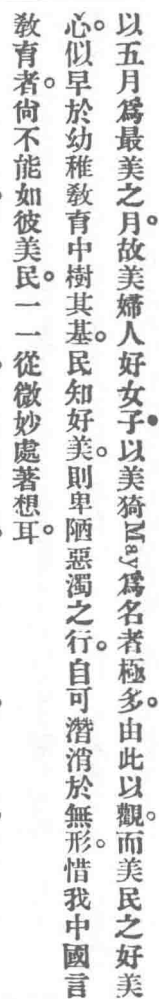 以五月爲最美之月。故美婦人好女子。以美猗May爲名者極多。由此以觀。而美民之好美
心。似早於幼稚敎育中樹其基。民知好美。則卑陋惡濁之行。自可潛消於無形。惜我中國言
敎育者。尙不能如彼美民。一一從微妙處著想耳。